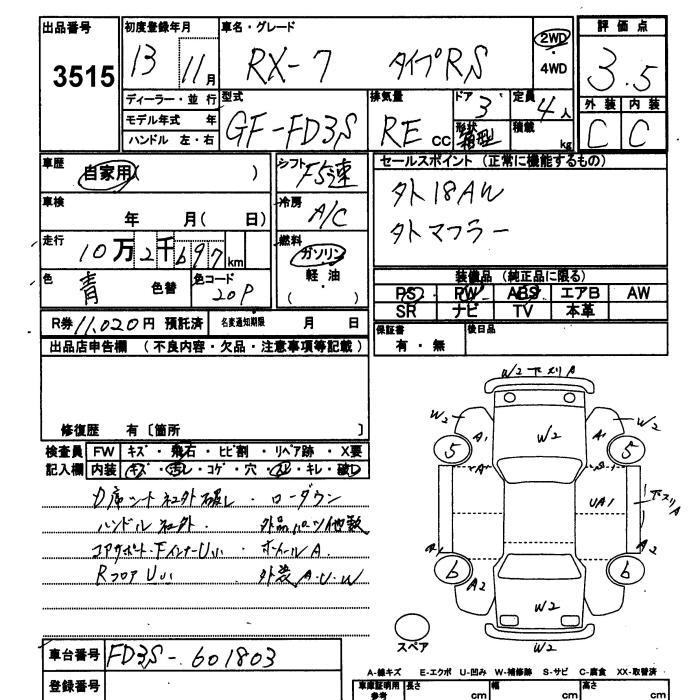 出品番号 初度登録年月 車名・グレード 評価点
3515 13 11月 RX-7 タイプRS 2WD 4WD 3.5
ディーラー・並行 型式 排気量 ドア 3 定員 4人 外装 内装
モデル年式 年 GF-FD3S RE cc 形状 箱型 積載 kg C C
ハンドル 左・右
車歴 自家用( ) シフト F5速 セールスポイント (正常に機能するもの)
車検 年 月( 日) 冷房 A/C 外18AW
外マフラー
走行 10万2千697km 燃料 ガソリン 軽・油 ( )
色 青 色替 色コード 20P
装備品 (純正品に限る)
PS PW ABS エアB AW
SR ナビ TV 本革
R券 11,020円 預託済 名変通知期限 月 日 保証書 有・無 後日品
出品店申告欄 (不良内容・欠品・注意事項等記載)
修復歴 有〔箇所 〕
検査員 FW キズ・飛石・ヒビ割・リペア跡・X要
記入欄 内装 キズ・汚レ・コゲ・穴・スレ・キレ・破レ
D席シート ・ローダウン
ハンドル ・外品パーツ他数
コアサポート・FインナーUハ ホイールA
RフロアUハ 外装A・U・W
W2 下スリA
W2 W2
A1 W2 A1
5 5
A A
UA1 下スリA
A A2
6 6
A2
W2
W2
スペア
車台番号 FD3S-601803
登録番号
A-線キズ E-エクボ U-凹み W-補修跡 S-サビ C-腐食 XX-取替済
車庫証明用参考 長さ cm 幅 cm 高さ cm